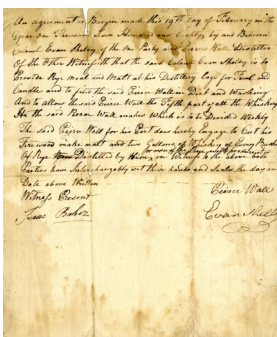 An agreement or Bargin made this 19th day of February in the
year One Thousand Seven Hundred and Eighty, by and Between
Colonel Evan Shelby of the One Party and Pierce Wall Distiller
of the Other Witnesseth that the said Colonel Evan Shelby is to
Provide Rye meal and Malt at his Distillery Caps for Still and
Candles and to find the said Pierce Wall in Diet and Washing
And to allow the said Pierce Wall the Fifth part of all the Whiskey
He the said Pierce Wall makes which is to be Divided Weekly
The said Pierce Wall for his Part does hereby Engage to Cut his
Fire wood make malt and two Gallons of Whiskey of Every Bushel
Of Rye Distilled by Him, in Witness to the above Both
Parties have Interchangably set their hands and Seals the day and
Date above Written
Witness Present
Pierce Wall
Isaac Baker
Evan Shelby